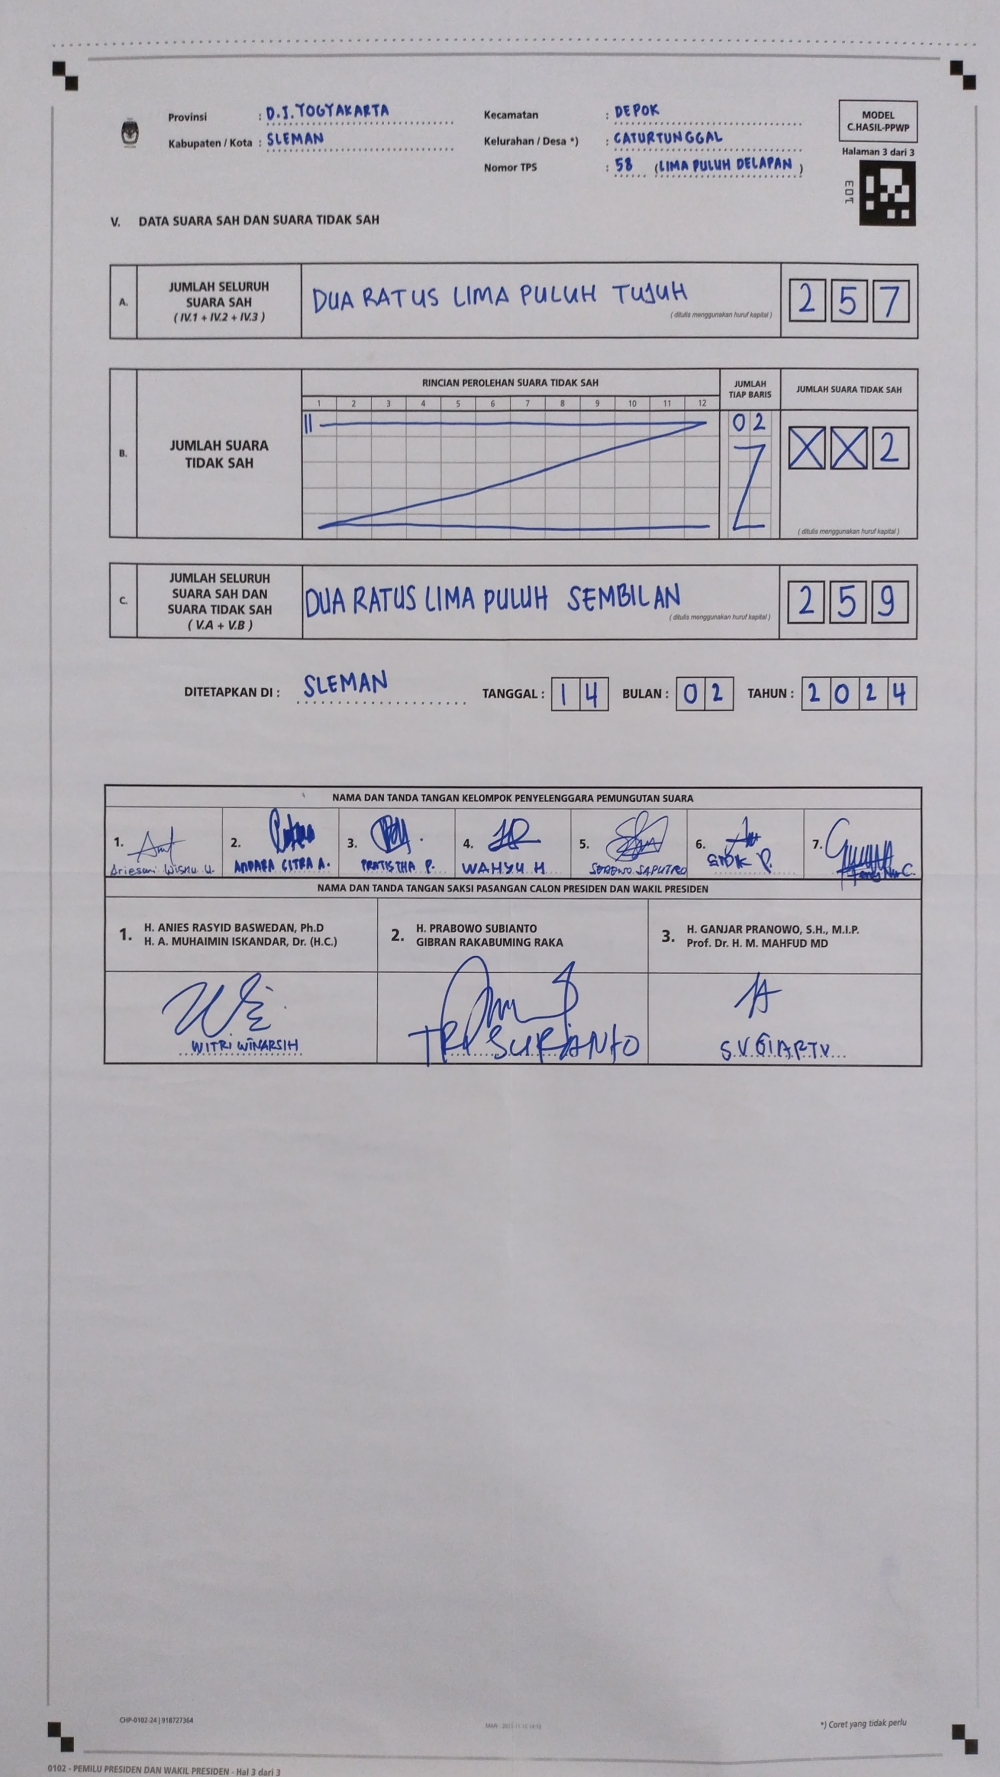 Provinsi : D.I. YOGYAKARTA
Kabupaten / Kota : SLEMAN
Kecamatan : DEPOK
Kelurahan / Desa *) : CATURTUNGGAL
Nomor TPS : 58 (LIMA PULUH DELAPAN)
MODEL
C.HASIL-PPWP
Halaman 3 dari 3
V. DATA SUARA SAH DAN SUARA TIDAK SAH
A. JUMLAH SELURUH
SUARA SAH
( IV.1 + IV.2 + IV.3 )
DUA RATUS LIMA PULUH TUJUH
( ditulis menggunakan huruf kapital )
2 5 7
B. JUMLAH SUARA
TIDAK SAH
RINCIAN PEROLEHAN SUARA TIDAK SAH
1 2 3 4 5 6 7 8 9 10 11 12
JUMLAH
TIAP BARIS
0 2
JUMLAH SUARA TIDAK SAH
X X 2
( ditulis menggunakan huruf kapital )
C. JUMLAH SELURUH
SUARA SAH DAN
SUARA TIDAK SAH
( V.A + V.B )
DUA RATUS LIMA PULUH SEMBILAN
( ditulis menggunakan huruf kapital )
2 5 9
DITETAPKAN DI : SLEMAN TANGGAL : 1 4 BULAN : 0 2 TAHUN : 2 0 2 4
NAMA DAN TANDA TANGAN KELOMPOK PENYELENGGARA PEMUNGUTAN SUARA
1. 2. 3. 4. 5. 6. 7.
Wisnu U. ANDARA CITRA A. PRATISTHA P. WAHYU H SAPUTRO
NAMA DAN TANDA TANGAN SAKSI PASANGAN CALON PRESIDEN DAN WAKIL PRESIDEN
1. H. ANIES RASYID BASWEDAN, Ph.D
H. A. MUHAIMIN ISKANDAR, Dr. (H.C.)
2. H. PRABOWO SUBIANTO
GIBRAN RAKABUMING RAKA
3. H. GANJAR PRANOWO, S.H., M.I.P.
Prof. Dr. H. M. MAHFUD MD
WITRI WINARSIH
TRI SURIANTO
CHP-0102-24 | 918727364
*) Coret yang tidak perlu
0102 - PEMILU PRESIDEN DAN WAKIL PRESIDEN - Hal 3 dari 3